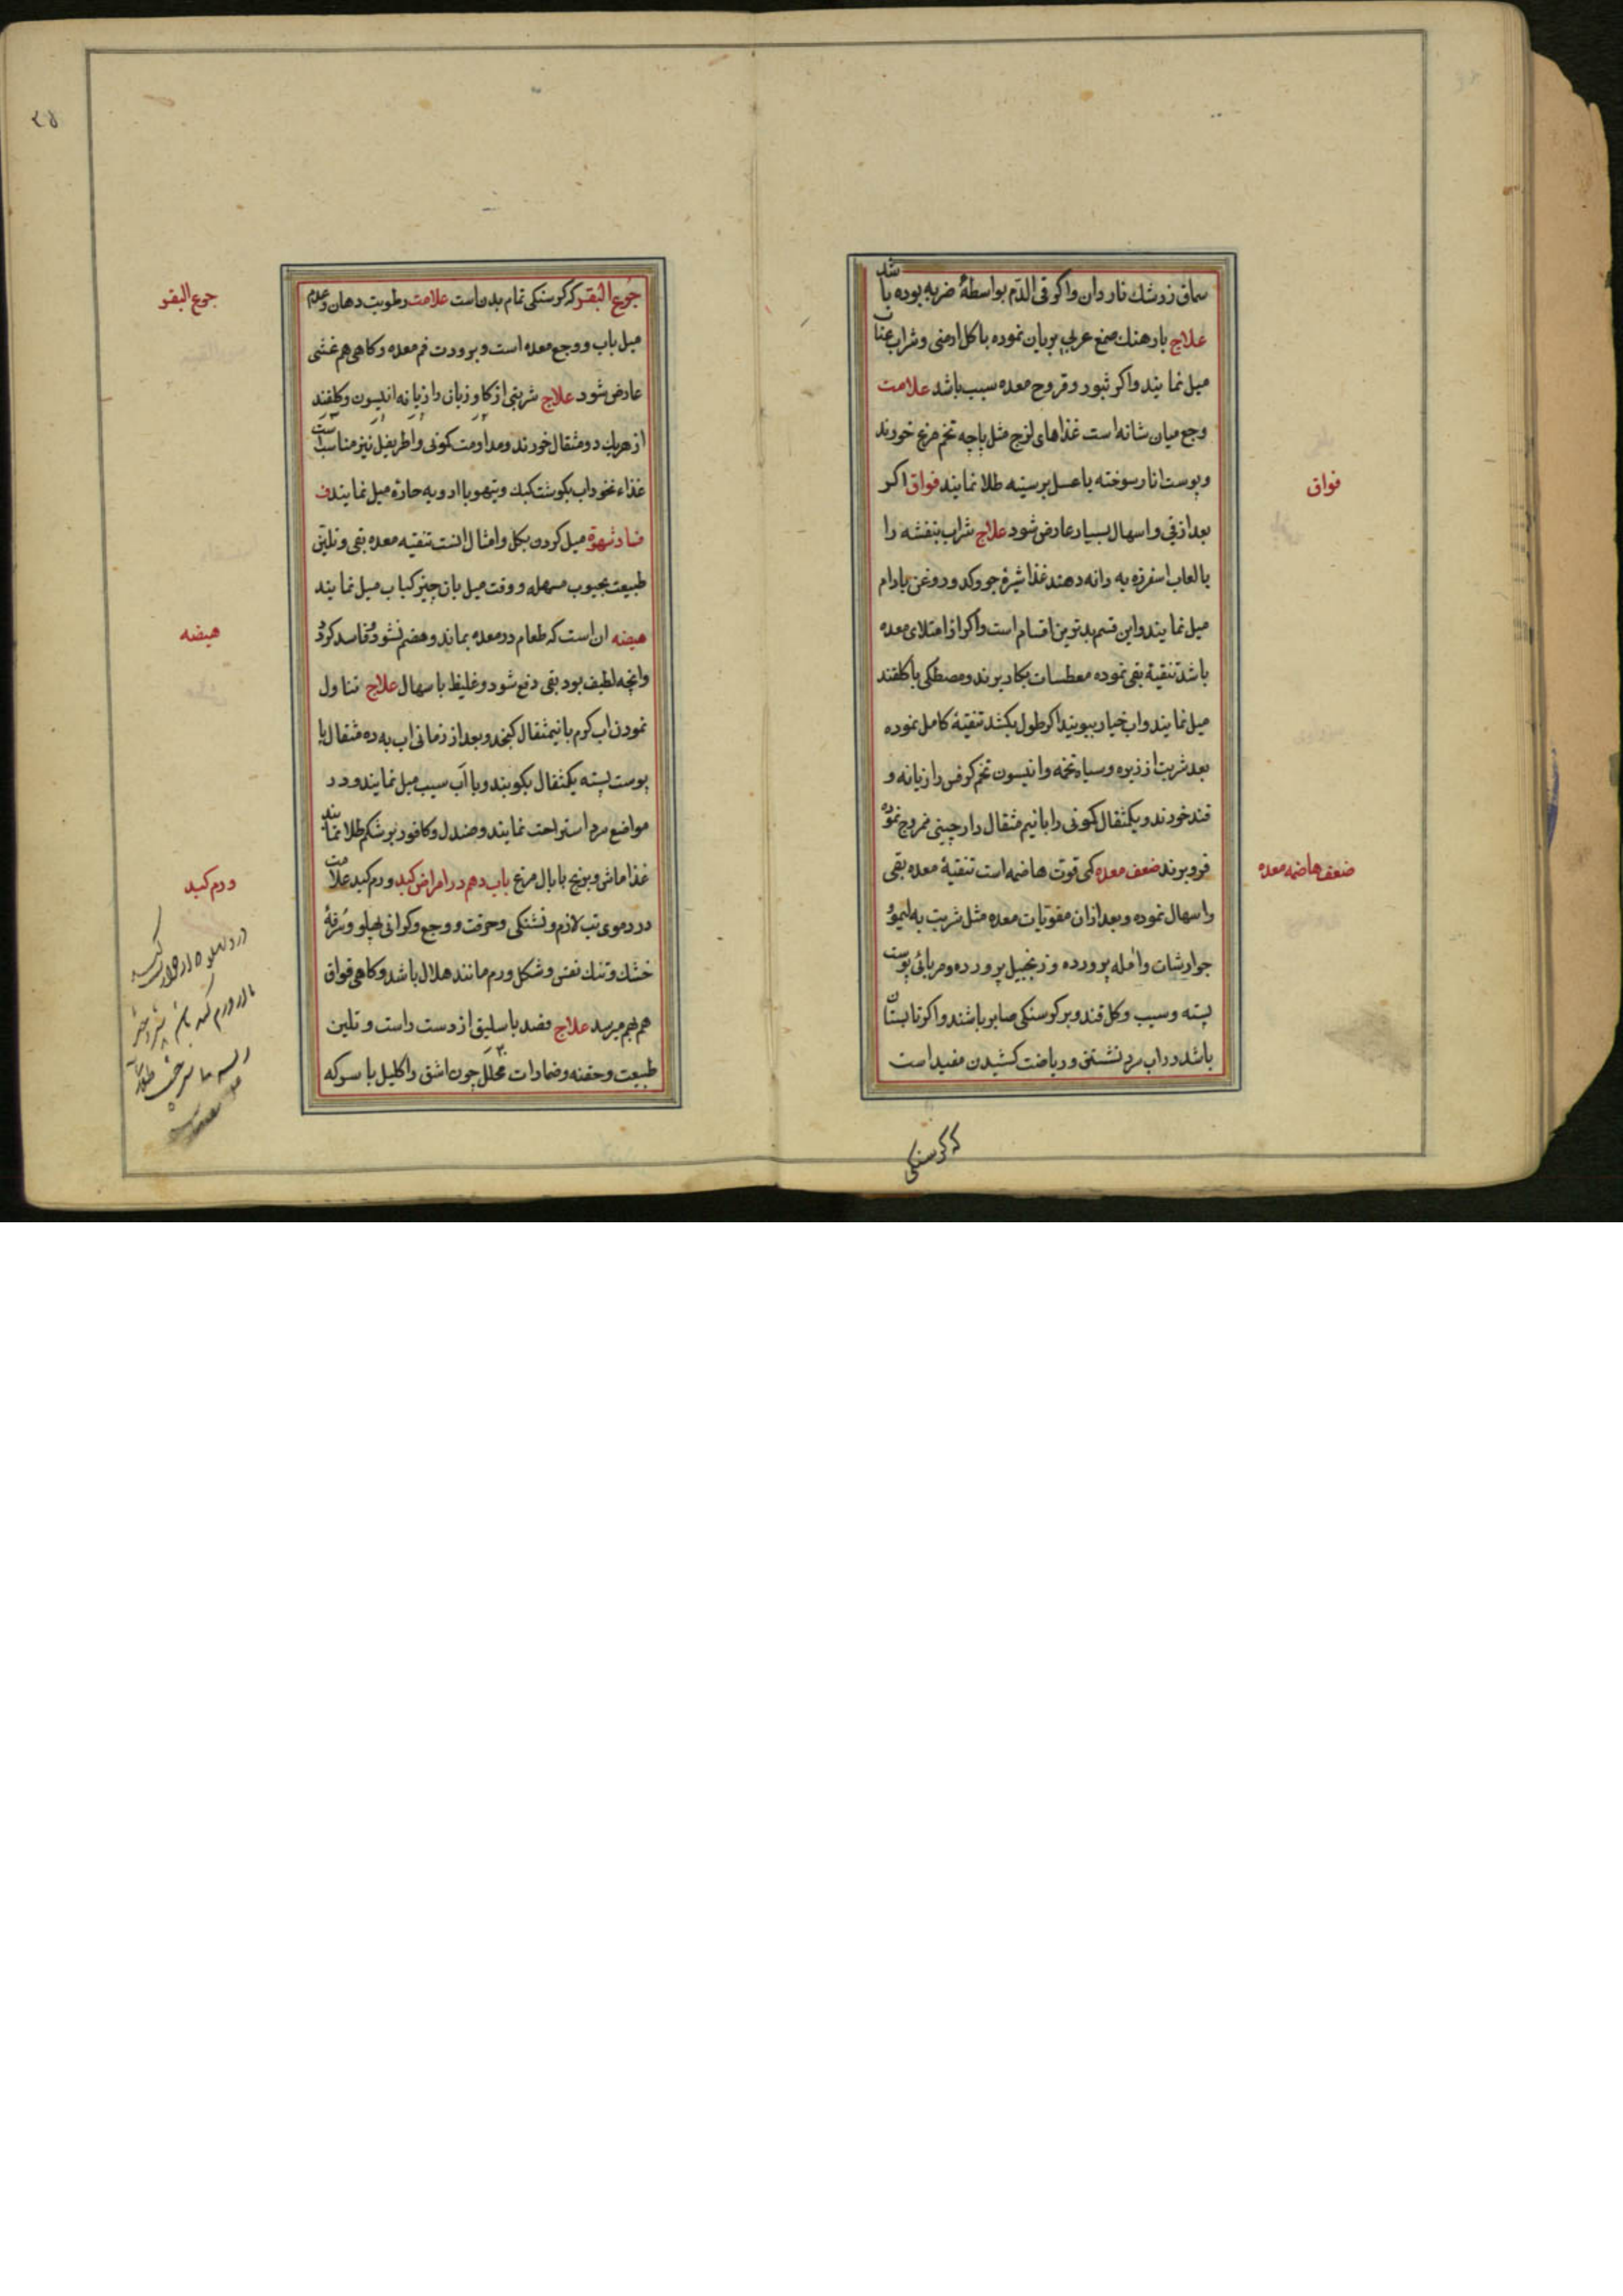 سماق زرشك ناردان واكر قى الدّم بواسطهٔ ضربه بوده باشد
علاج بارهنك صمغ عربى بريان نموده باكل ارمنى وشراب عناب
ميل نمايند واكر ثبور وقروح معده سبب باشد علامت
وجع ميان شانه است غذاهاى لزج مثل پاچه تخم مرغ خورند
وپوست انار سوخته ياعسل برسينه طلا نمايند فواق اكر
بعد از قى واسهال بسيار عارض شود علاج شراب بنفشه را
بالعاب اسفرزه به دانه دهند غذا شيرهٔ جو وكدو وروغن بادام
ميل نمايند واين قسم بدترين اقسام است واكر از امتلاى معده
باشد تنقيهٔ بقى نموده معطسات بكار برند ومصطكى باكلقند
ميل نمايند واب خيار ببويند اكر طول بكشد تنقيهٔ كامل نموده
بعد شربت از زيره وسياه تخمه وانيسون تخم كرفس رازيانه و
قند خورند ويكمثقال كمونى را بانيم مثقال دارچينى ممزوج نموده
فرو برند ضعف معده كمى قوت هاضمه است تنقيهٔ معده بقى
واسهال نموده وبعد ازان مقويات معده مثل شربت به ليمو و
جوارشات وامله پرورده وزنجبيل پرورده ومرباى پوست
پسته وسيب وكل قند وبر كرسنكى صابر باشند واكر تابستان
باشد در اب سرد نشستن ورياضت كشيدن مفيد است
فواق
ضعف هاضمه معده
كه كرسنكى
جوع البقر كه كرسنكى تمام بدن است علامت رطوبت دهان وعدم
ميل باب ووجع معده است وبرودت فم معده وكاهى هم غشى
عارض شود علاج شربتى از كاو زبان ورازيانه انيسون وكلقند
از هريك دو مثقال خورند ومداومت كمونى واطريفل نيز مناسب است
غذاء نخوداب بكوشت كبك وتيهو با ادويه حاره ميل نمايند ف
فساد شهوة ميل كردن بكل وامثال انست تنقيه معده بقى وتلين
طبيعت بحبوب مسهله ووقت ميل بان چيز كباب ميل نمايند
هيضه ان است كه طعام در معده بماند وهضم نشود وفاسد كردد
وانچه لطيف بود بقى دفع شود وغليظ باسهال علاج تناول
نمودن اب كرم بانيمثقال كنجد وبعد از زمانى اب به ده مثقال با
پوست پسته يكمثقال بكوبند وبا آب سيب ميل نمايند ودر
مواضع سرد استراحت نمايند وصندل وكافور بر شكم طلا نمايند
غذا ماش وبرنج بابال مرغ باب دهم در امراض كبد ورم كبد علامت
در دموى تب لازم وتشنكى وحرقت ووجع وكرانى پهلو وسرفهٔ
خشك وتنك نفس وشكل ورم مانند هلال باشد وكاهى فواق
هم بهم ميرسد علاج فصد باسليق از دست راست وتلين
طبيعت وحقنه وضمادات محلل چون اشق واكليل با سركه
جوع البقر
هيضه
ورم كبد